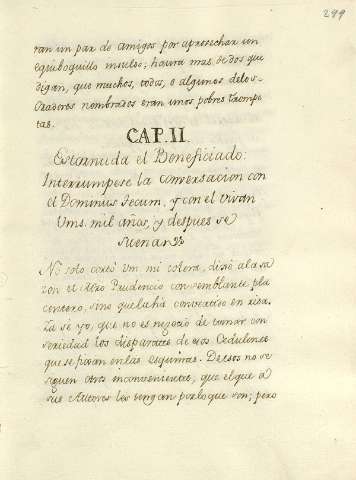 299
ran un par de amigos por aprovechar un
equiboquillo insulso; haura mas de dos que
digan, que muchos, todos, o algunos delos
oradores nombrados eran unos pobres trompe
tas.
CAP. II.
Estornuda el Beneficiado:
Interrumpese la conversacion con
el Dominus tecum, y con el vivan
Vms. mil años, y despues se
suenan.
No solo cortó Vm mi colera, dixo ala sa
zon el Mro Prudencio con semblante pla
centero, sino quela há convertido en risa.
Ya se yo, que no es negocio de tomar con
seriedad los disparates de esos Cedulones
que se ponen en las esquinas. De esos no se
siguen otros inconvenientes, que el que a
sus Autores los tengan por lo que son; pero